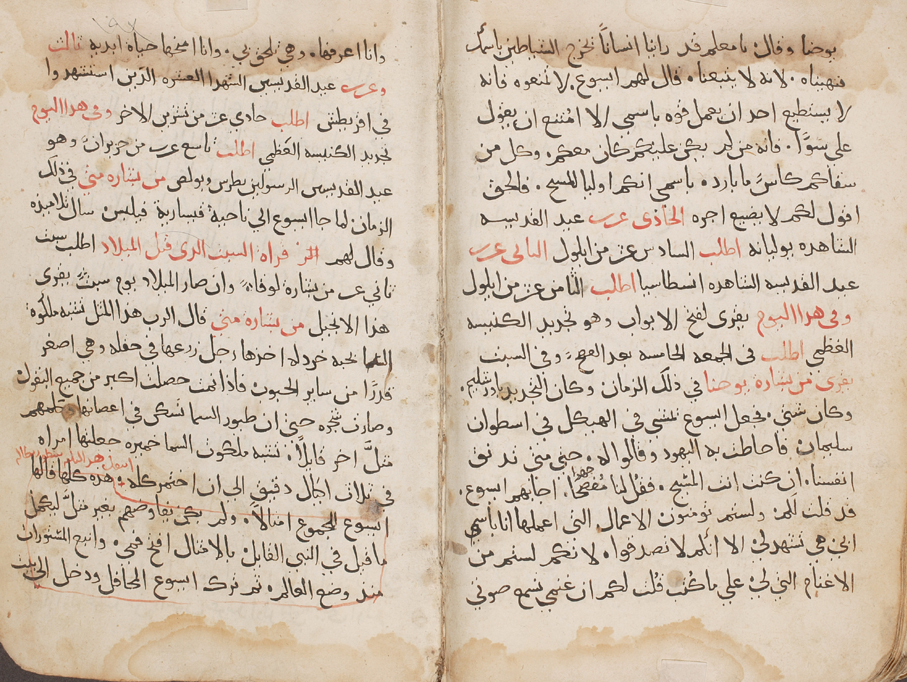 يوحنا وقال يا معلم قد راينا انسانًا يخرج الشياطين باسمك
فنهيناه لانه لا يتبعنا. قال لهم ايسوع لا تمنعوه فانه
لا يستطيع احد ان يعمل قوه باسمي الا امتنع ان يقول
علي سوًا. فانه من لم يكن عليكم كان معكم. وكل من
سقاكم كاس ما بارد. باسمي انكم اوليا المسيح. فالحق
اقول لكم لا يضيع اجره الحادي عشر عيد القديسه
الشاهده يوليانه اطلب السادس عشر من ايلول الثاني عشر
عيد القديسه الشاهده انسطاسيا اطلب الثامن عشر من ايلول
وفي هذا اليوم يقرى لفتح الابواب وهو تجديد الكنيسه
العظمى اطلب في الجمعه الخامسه بعد الفصح وفي السبت
يقرى من بشارة يوحنا في ذلك الزمان وكان التجديد باورشليم.
وكان شتي. فجعل ايسوع يمشي في الهيكل في اسطوان
سليمان فاحاطت به اليهود وقالوا له. حتى متى تدنق
انفسنا. ان كنت انت المسيح. فقل لنا مفصحًا. اجابهم ايسوع.
قد قلت لكم ولستم تومنون الاعمال التي اعملها انا باسم
ابي هي تشهد لي الا انكم لا تصدقوا. لانكم لستم من
الاغنام التي لي علي ما كنت قلت لكم ان غنمي تسمع صوتي
وانا اعرفها. وهي تلحق بي. وانا امنحها حياة ابدية ثالث
وعشرين عيد القديسين الشهدا العشره الذين استشهدوا
في اقريطش اطلب حادي عشر من تشرين الاخر وفي هذا اليوم
تجديد الكنيسه العظمى اطلب تاسع عشرين من حزيران وهو
عيد القديسين الرسولين بطرس وبولص من بشاره متى في ذلك
الزمان لما جا ايسوع الى ناحية قيسارية فيلبس سال تلاميذه
وقال لهم قراة السبت الذي قبل الميلاد اطلب سبت
ثاني عشر من بشارة لوقا وان صار الميلاد يوم سبت يقرى
هذا الانجيل من بشاره متى قال الرب هذا المثل تشبه ملكوة
السما حبة خردله اخذها رجل زرعها في حقله وهي اصغر
قدرًا من ساير الحبوب فاذا نمت حصلت اكبر من جميع البقول
وصارت شجره حتى ان طيور السما تسكن في اغصانها وكلمهم
مثلًا اخر قايلًا. تشبه ملكوت السما خميره جعلتها امراه
في ثلاث اكيال دقيق الى ان اختمر كله. هذه كلها قالها
ايسوع للجموع امثالًا. ولم يكن يفاوضهم بغير مثل ليكمل
ما قيل في النبي القايل بالامثال افتح فمي. وانبع المستورات
منذ وضع العالم. ثم ترك ايسوع المحافل ودخل الى بيت